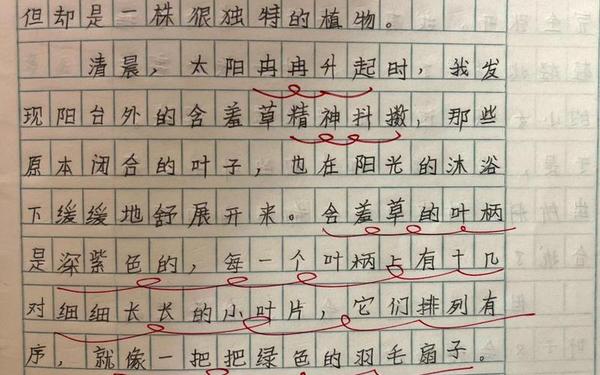 但却是一株很独特的植物。
清晨，太阳冉冉升起时，我发
现阳台外的含羞草精神抖擞，那些
原本闭合的叶子，也在阳光的沐浴
下缓缓地舒展开来。含羞草的叶柄
是深紫色的，每一个叶柄上有十几
对细细长长的小叶片，它们排列有
序，就像一把把绿色的羽毛扇子。